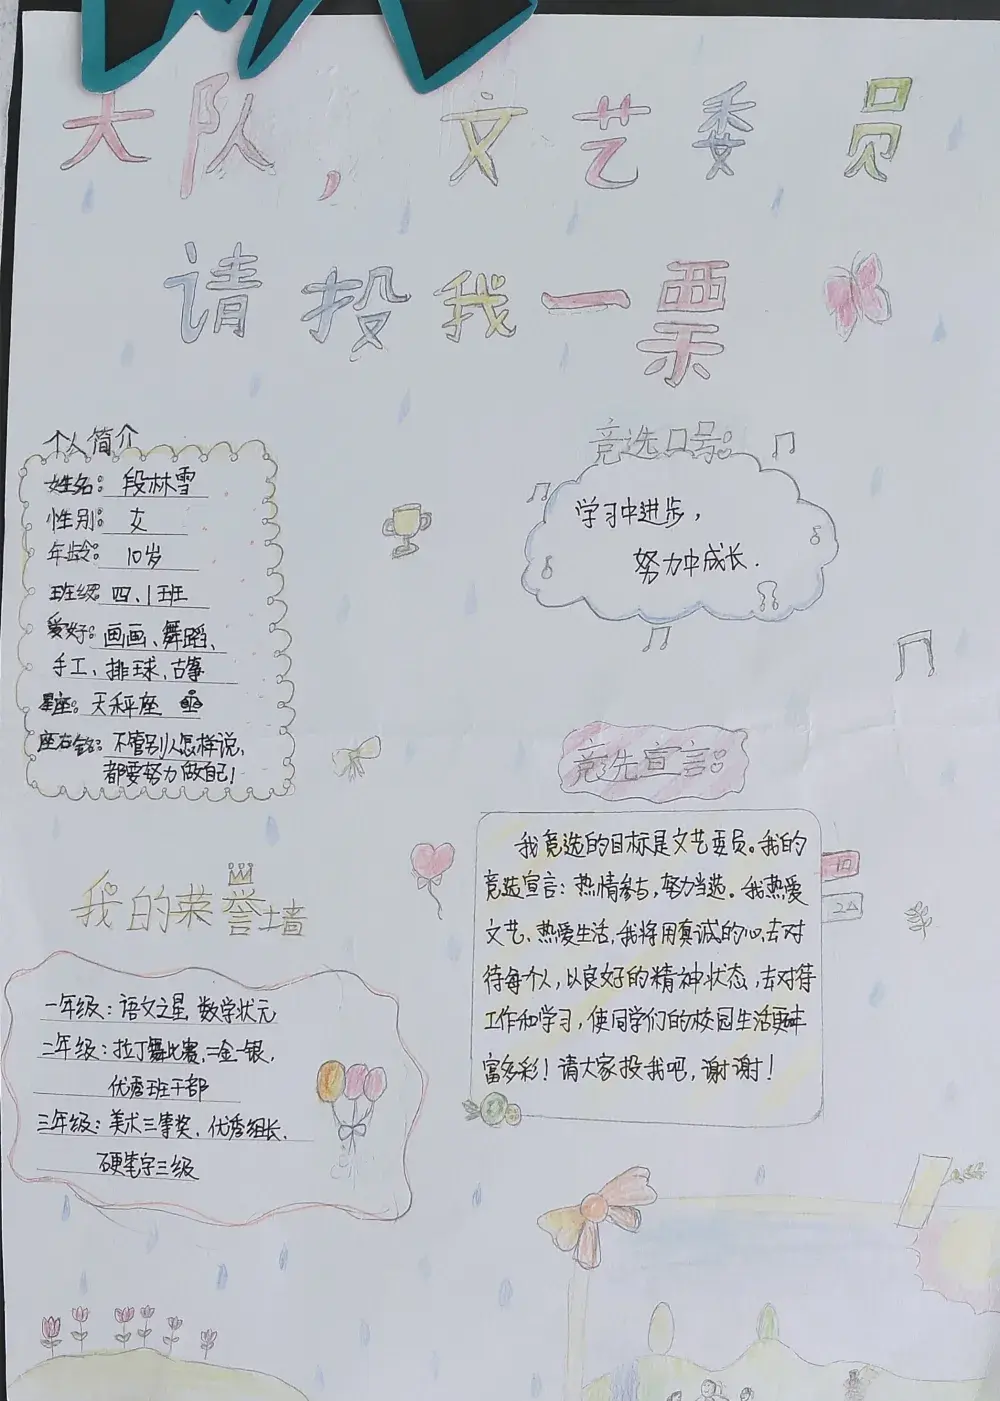 大队，文艺委员
请投我一票
个人简介
姓名：段林雪
性别：女
年龄：10岁
班级：四、1班
爱好：画画、舞蹈、
手工、排球、古筝
星座：天秤座
座右铭：不管别人怎样说，
都要努力做自己！
竞选口号：
学习中进步，
努力中成长．
竞选宣言：
我竞选的目标是文艺委员。我的
竞选宣言：热情参与，努力当选。我热爱
文艺、热爱生活，我将用真诚的心去对
待每个人，以良好的精神状态，去对待
工作和学习，使同学们的校园生活更
富多彩！请大家投我吧，谢谢！
我的荣誉墙
一年级：语文之星 数学状元
二年级：拉丁舞比赛，二金一银，
优秀班干部
三年级：美术三等奖，优秀组长．
硬笔字三级